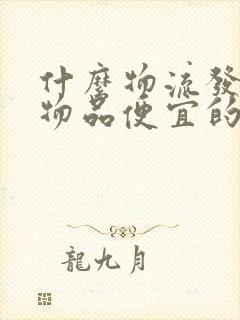 什麼物流發
物品便宜的
龍九月